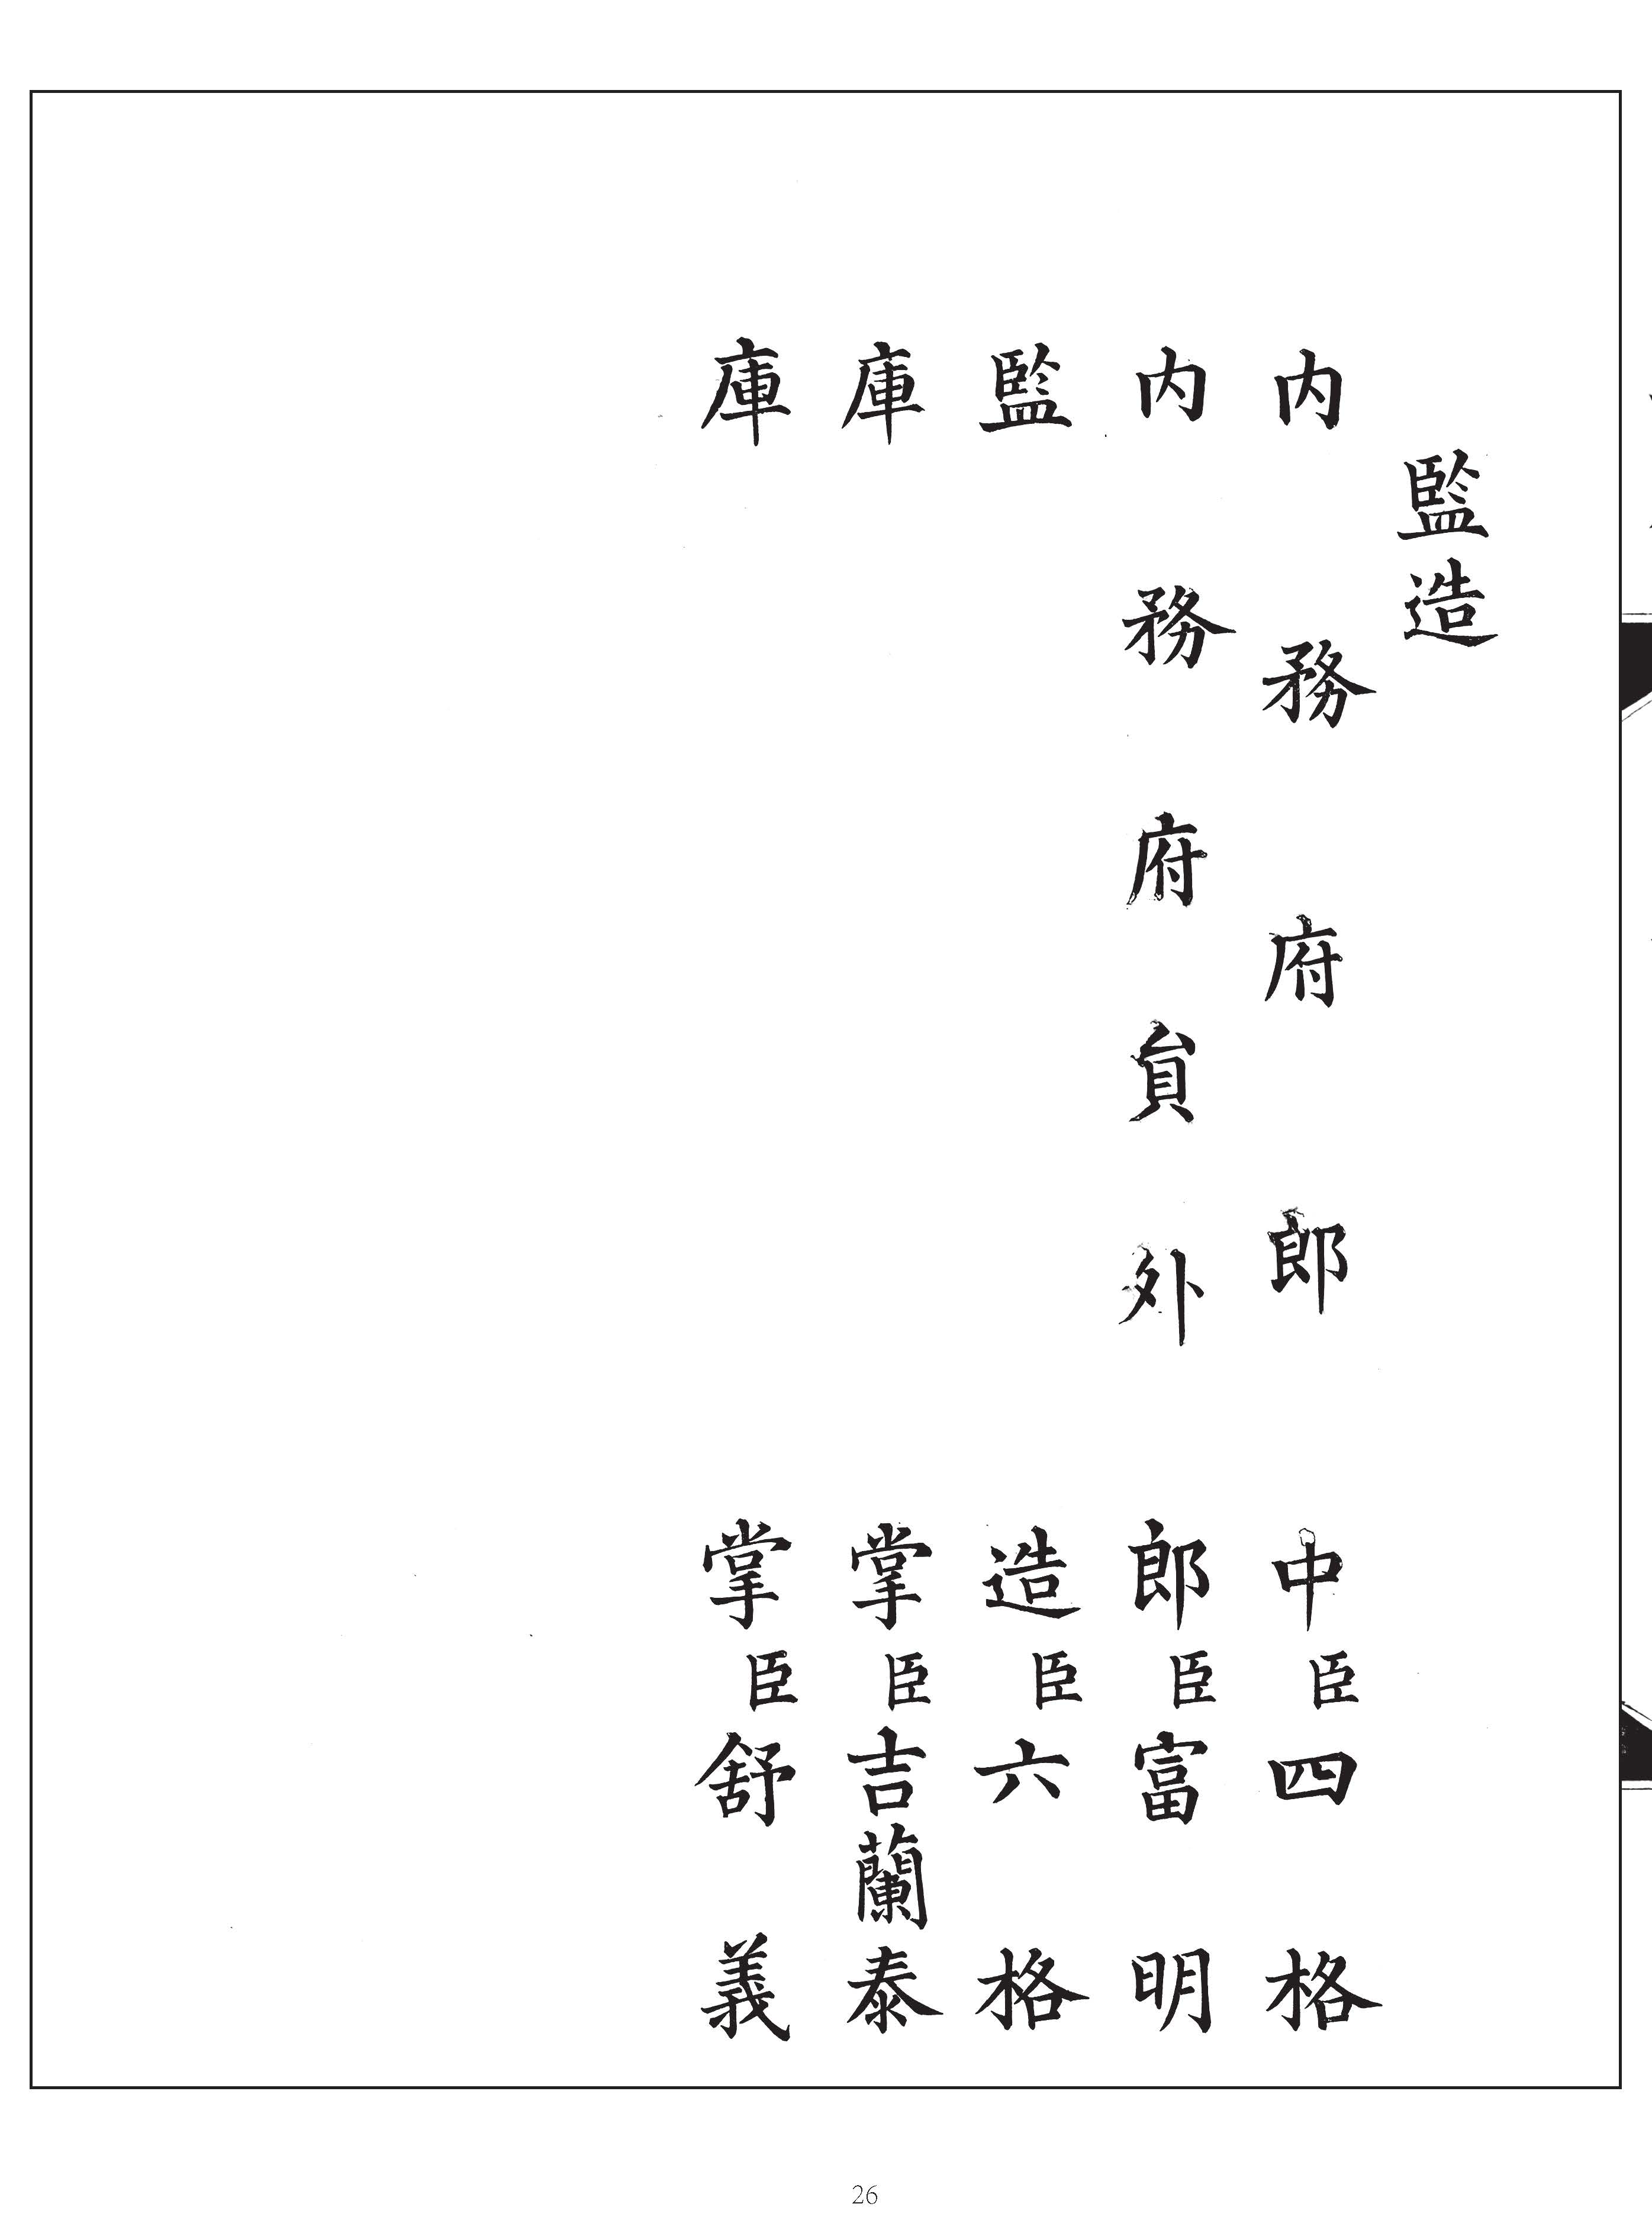 監造
内務府郎中臣四格
内務府貟外郎臣富明
監造臣六格
庫掌臣吉蘭泰
庫掌臣舒義
26